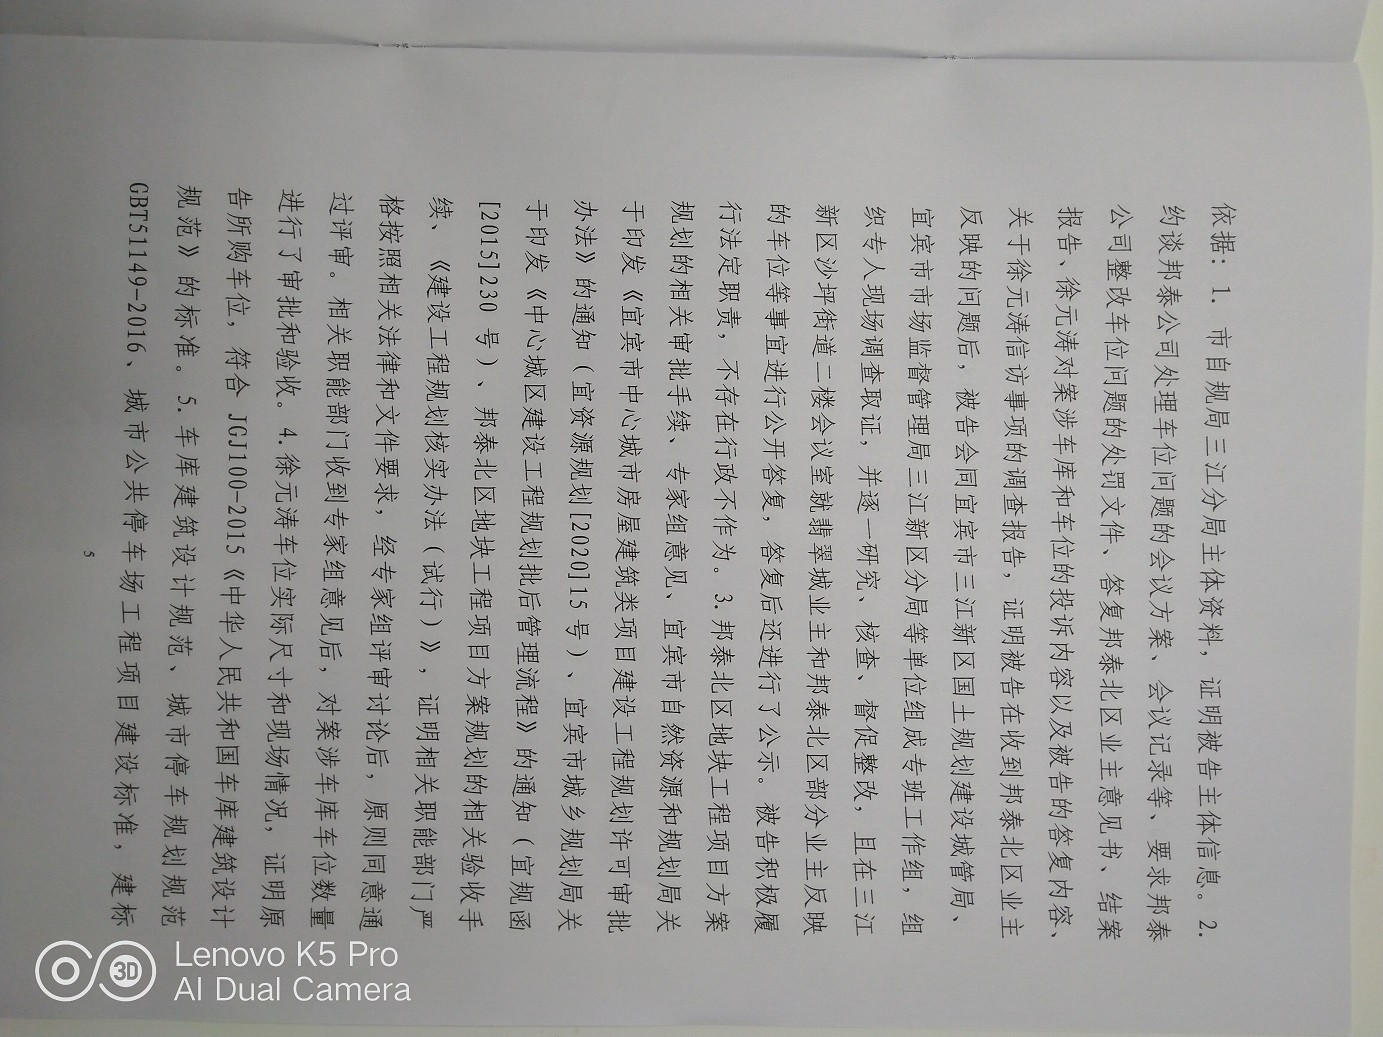 依据：1. 市自规局三江分局主体资料，证明被告主体信息。2.
约谈邦泰公司处理车位问题的会议方案、会议记录等、要求邦泰
公司整改车位问题的处罚文件、答复邦泰北区业主意见书、结案
报告、徐元涛对案涉车库和车位的投诉内容以及被告的答复内容、
关于徐元涛信访事项的调查报告，证明被告在收到邦泰北区业主
反映的问题后，被告会同宜宾市三江新区国土规划建设城管局、
宜宾市市场监督管理局三江新区分局等单位组成专班工作组，组
织专人现场调查取证，并逐一研究、核查、督促整改，且在三江
新区沙坪街道二楼会议室就翡翠城业主和邦泰北区部分业主反映
的车位等事宜进行公开答复，答复后还进行了公示。被告积极履
行法定职责，不存在行政不作为。3.邦泰北区地块工程项目方案
规划的相关审批手续、专家组意见、宜宾市自然资源和规划局关
于印发《宜宾市中心城市房屋建筑类项目建设工程规划许可审批
办法》的通知（宜资源规划[2020]15号）、宜宾市城乡规划局关
于印发《中心城区建设工程规划批后管理流程》的通知（宜规函
[2015]230 号）、邦泰北区地块工程项目方案规划的相关验收手
续、《建设工程规划核实办法（试行）》，证明相关职能部门严
格按照相关法律和文件要求，经专家组评审讨论后，原则同意通
过评审。相关职能部门收到专家组意见后，对案涉车库车位数量
进行了审批和验收。4.徐元涛车位实际尺寸和现场情况，证明原
告所购车位，符合 JGJ100-2015《中华人民共和国车库建筑设计
规范》的标准。5.车库建筑设计规范、城市停车规划规范
GBT51149-2016、城市公共停车场工程项目建设标准，建标
5
Lenovo K5 Pro
AI Dual Camera
3D